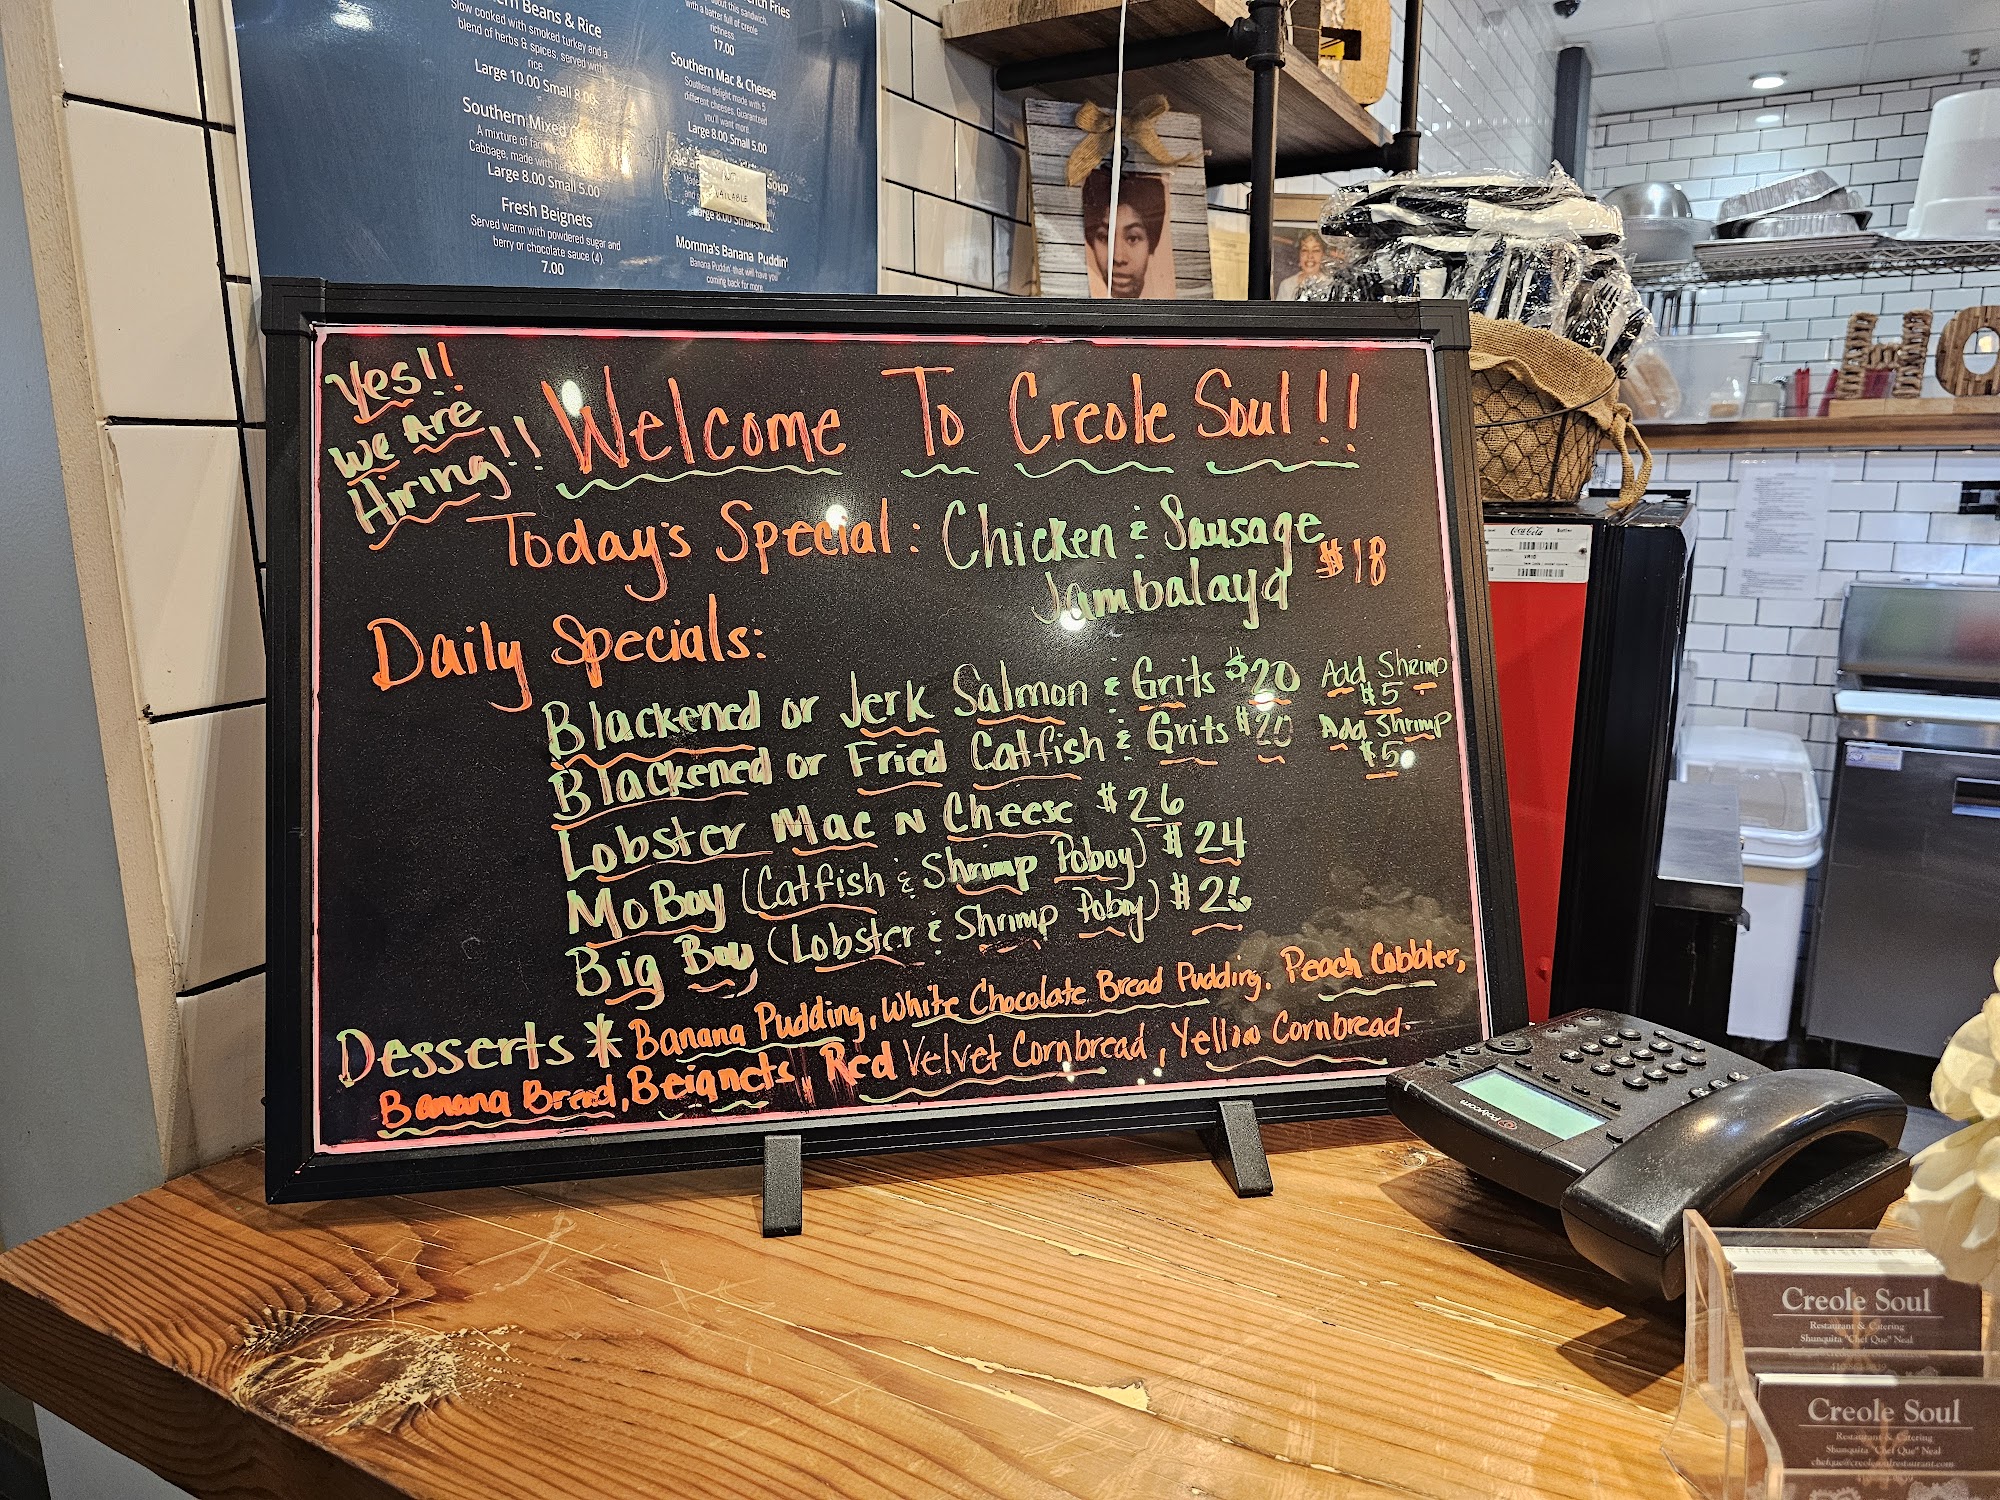 Beans & Rice
Slow cooked with smoked turkey and a
blend of herbs & spices, served with
rice.
Large 10.00 Small 8.00
Southern Mixed
A mixture of
Cabbage, made with
Large 8.00 Small 5.00
Fresh Beignets
Served warm with powdered sugar and
berry or chocolate sauce (4).
7.00
Fries
about this sandwich,
with a batter full of creole
richness.
17.00
Southern Mac & Cheese
Southern delight made with 5
different cheeses. Guaranteed
you'll want more.
Large 8.00 Small 5.00
Soup
NOT
AVAILABLE
Large 8.00 Small 5.00
Momma's Banana Puddin'
Banana Puddin' that will have you
coming back for more.
Yes!!
We Are
Hiring!!
Welcome To Creole Soul!!
Today's Special: Chicken & Sausage
Jambalaya $18
Daily Specials:
Blackened or Jerk Salmon & Grits $20 Add Shrimp $5
Blackened or Fried Catfish & Grits $20 Add Shrimp $5
Lobster Mac N Cheese $26
Mo Boy (Catfish & Shrimp Poboy) $24
Big Boy (Lobster & Shrimp Poboy) $26
Desserts * Banana Pudding, White Chocolate Bread Pudding, Peach Cobbler,
Banana Bread, Beignets, Red Velvet Cornbread, Yellow Cornbread.
Coca-Cola
HO
Polycom
Creole Soul
Restaurant & Catering
Shunquita "Chef Que" Neal
Creole Soul
Restaurant & Catering
Shunquita "Chef Que" Neal
chefque@creolesoulrestaurant.com